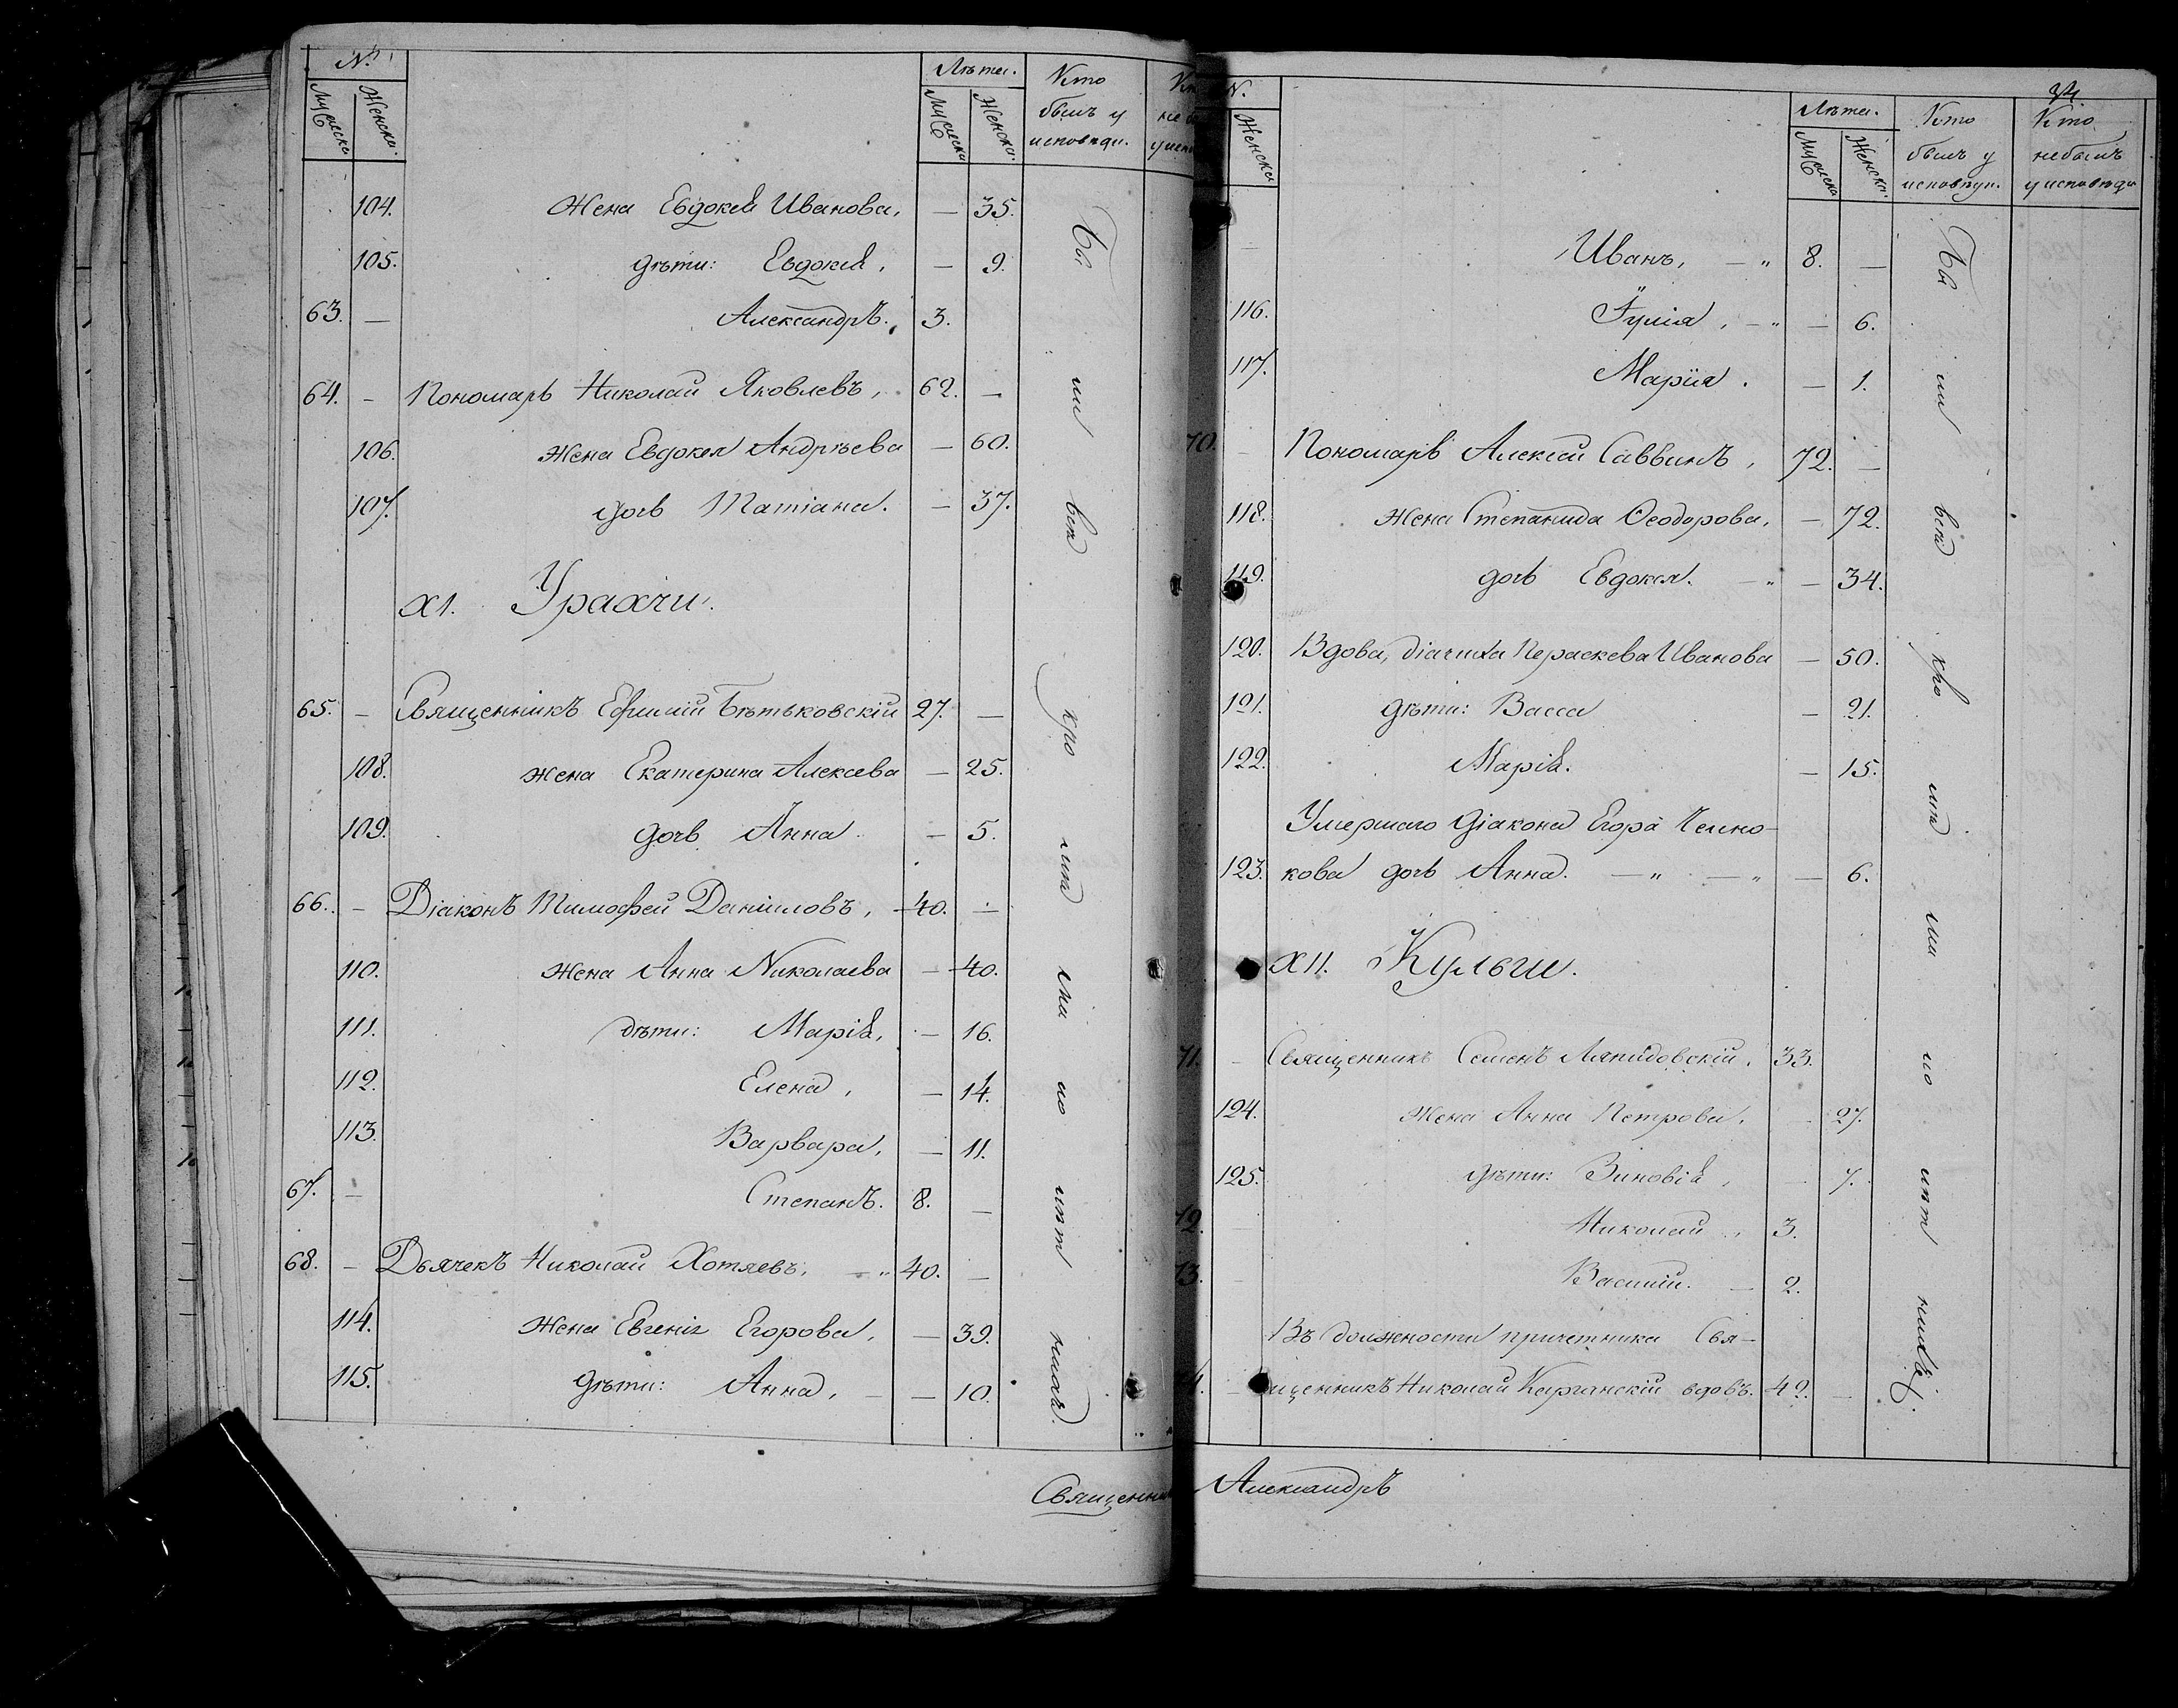 №.
Мужеска Женска.
Лѣта.
Мужеска Женска.
Кто былъ у исповѣди.
104. Жена Евдокея Иванова, — 35.
105. дѣти: Евдокея, — 9.
63. — Александръ. 3.
64. — Пономарь Николай Яковлевъ, 62. —
106. жена Евдокея Андрѣева — 60.
107. дочь Татіана. — 37.
XI. Урахчи.
65. — Священникъ Ефимій Бѣтьковскій 27. —
108. жена Екатерина Алексѣева — 25.
109. дочь Анна — 5.
66. — Діаконъ Тимофей Даніиловъ, 40. —
110. жена Анна Николаева — 40.
111. дѣти: Марія, — 16.
112. Елена, — 14.
113. Варвара, — 11.
67. — Степанъ. 8. —
68. — Дьячекъ Николай Хотяевъ, — „ 40. —
114. Жена Евгенія Егорова, — 39.
115. дѣти: Анна, — — 10.
Бы ли всѣ кро
Священни
34
№.
Женска
Лѣта.
Мужеска Женска.
Кто былъ у исповѣди.
Кто небылъ у исповѣди
— Иванъ, — „ 8. —
116. Іулія, — „ — 6.
117. Марія. — 1.
70. — Пономарь Алексѣй Саввинъ, 72. —
118. жена Степанида Ѳеодорова, — 72.
119. дочь Евдокея. — „ — 34.
120. Вдова, діачиха Параскева Иванова — 50.
121. дѣти: Васса — 21.
122. Марія. — 15.
Умершаго діакона Егора
123. кова дочь Анна. — „ — „ — 6.
XII. Кулыги.
71. — Священникъ Семенъ Ляпидовскій, 33.
124. жена Анна Петрова, — 27.
125. дѣти: Зиновія, — 7.
72. — Николай, 3.
73. — Василій. — 2.
Въ должности причетника Свя-
— щенникъ Николай Карганскій вдовъ. 42. —
Бы ли всѣ кро
Александръ